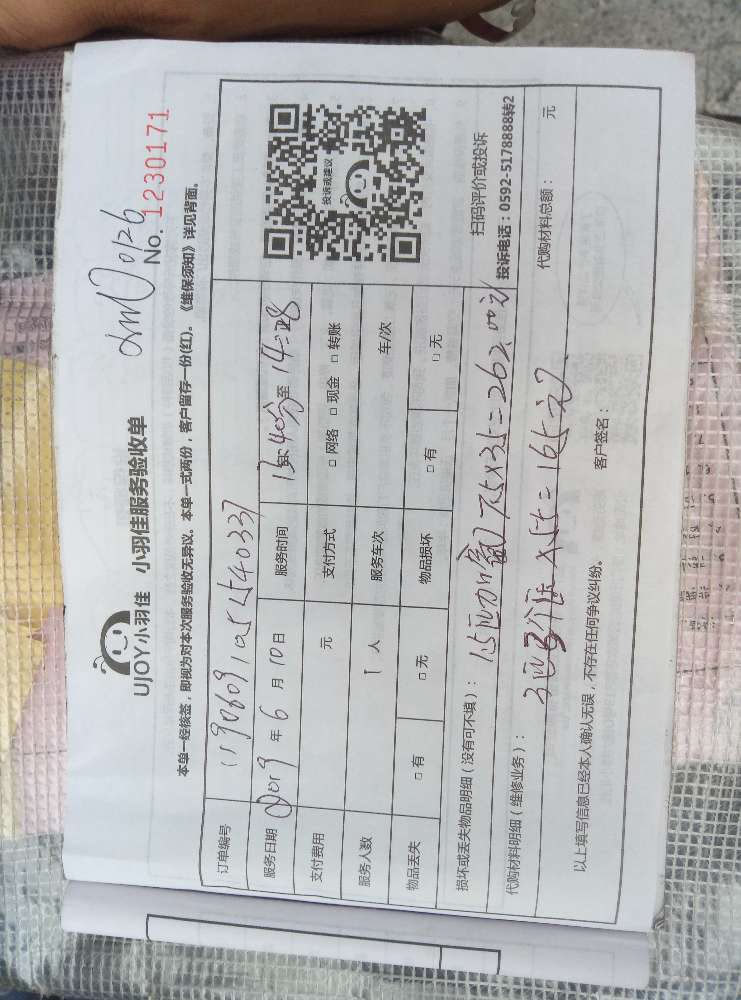 UJOY小羽佳 小羽佳服务验收单
0126
No. 1230171
本单一经核签，即视为对本次服务验收无异议。本单一式两份，客户留存一份(红)。《维保须知》详见背面。
订单编号
服务日期 2019 年 6 月 10 日 服务时间 13:40分 至 14:28
支付费用 元 支付方式 □ 网络 □ 现金 □ 转账
服务人数 1 人 服务车次 车/次
物品丢失 □ 有 □ 无 物品损坏 □ 有 □ 无
投诉或建议
扫码评价或投诉
投诉电话：0592-5178888转2
损坏或丢失物品明细（没有可不填）： 1.5匹加氟 7.5×35=262.00元
代购材料明细（维修业务）： 代购材料总额： 元
3匹 3个压 ×55=165元
以上填写信息已经本人确认无误，不存在任何争议纠纷。 客户签名：